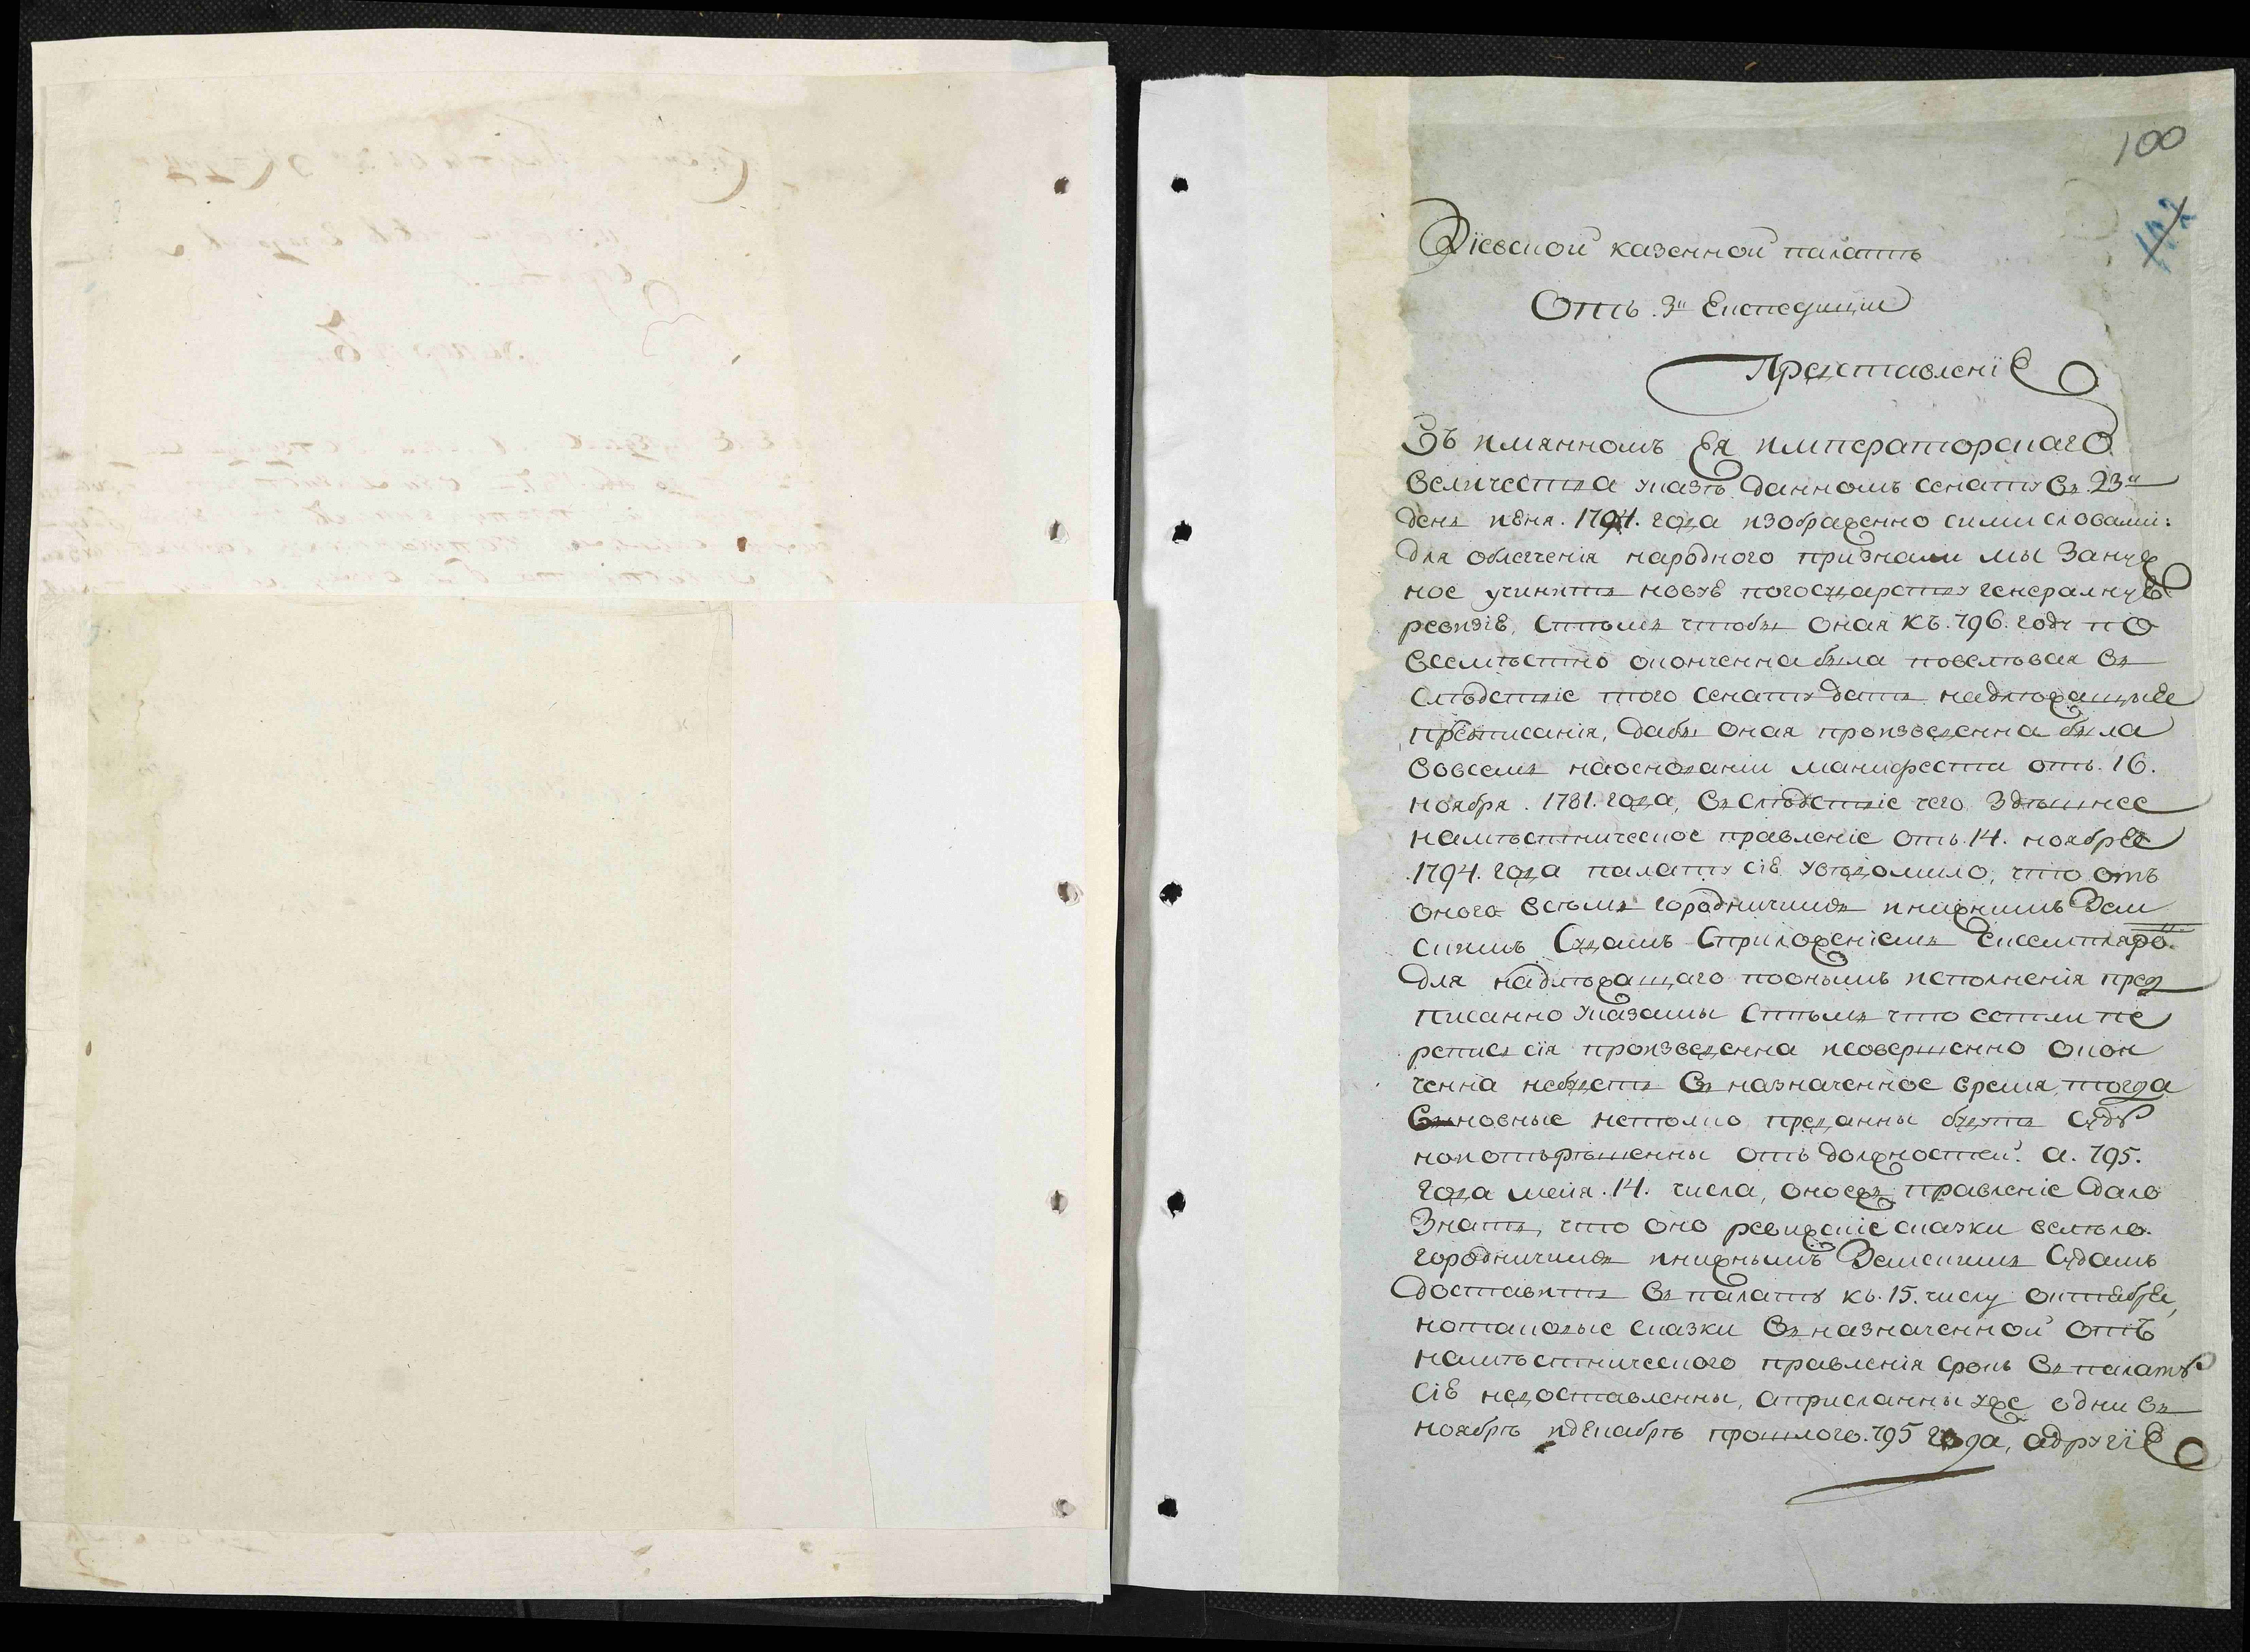 100
102
Кіевской казенной палатѣ
Отъ 3й Експедиции
Представленіе
Въ имянномъ Ея императорскаго
величества указѣ данномъ сенату въ 23й
день іюня. 1794. года изображенно сими словами:
для облегченія народного признали мы за нуж
ное учинить новую погосударству генералную
ревизію, стѣмъ чтобы оная къ. 796. году по
всемѣстно оконченна была повелѣвая въ
слѣдствіе того сенату дать надлежащие
предписанія, дабы оная произведенна была
вовсемъ наосновании манифеста отъ. 16.
ноября. 1781. года, въ слѣдствіе чего здѣшнее
намѣстническое правленіе отъ. 14. ноября
1794. года палату сію увѣдомило, что отъ
оного всѣмъ городничимъ инижнимъ Зем
скимъ Судамъ Сприложеніемъ Ексемпляро.
для надлежащаго поонымъ исполненія пред
писанно указамы Стѣмъ что естли пе
репись сія произведенна исовершенно окон
ченна небудетъ въ назначенное время, тогда
виновные нетолко преданны будутъ суду
нои отърѣшенны отъ должностей. а. 795.
года мая. 14. числа, оноежъ правленіе дало
знать, что оно ревижскіе сказки велѣло
городничимъ инижнымъ Земскимъ Судамъ
доставить въ палату къ. 15. числу октября,
нотаковые сказки въ назначенной отъ
намѣстнического правленія срокъ въ палату
сію недоставленны, априсланны уже одни въ
ноябрѣ идекабрѣ прошлого. 795 года, адругіе